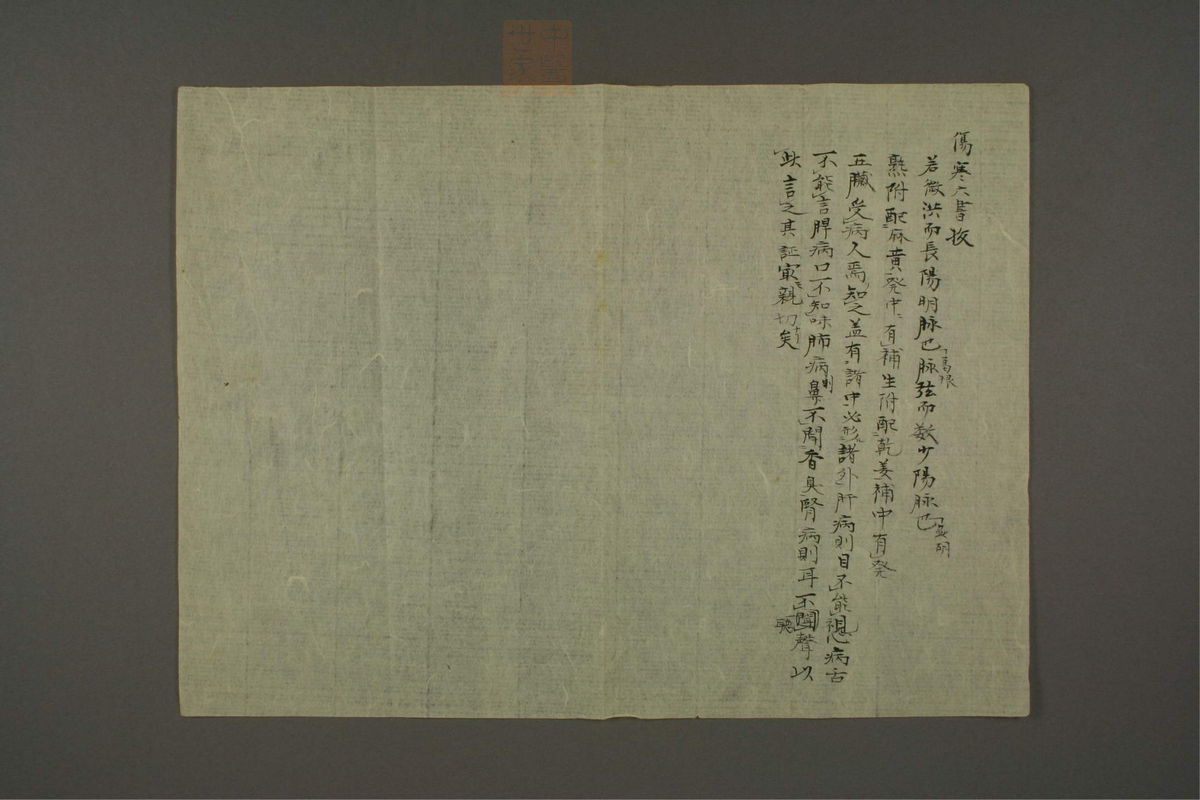 傷寒六書抜
若微洪而長陽明脉也葛根脉弦而数少陽脉也
熟附配麻黄発中ニ有補生附配乾姜補中有発
五臓受病人焉知之蓋有諸中必形諸外肝病則目不能視心病舌
不能言脾病口不知味肺病則鼻不聞香臭腎病則耳不聞聲以
此言之其証寔親切矣
中醫世家